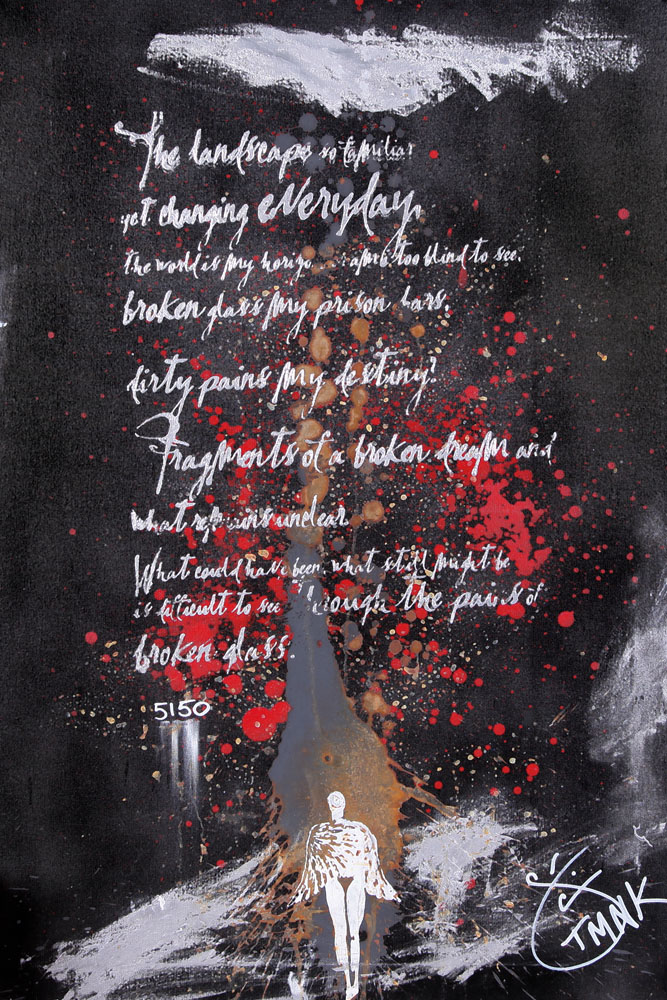 The landscape so familiar
yet changing everyday,
the world is my horizon am too blind to see.
broken glass my prison bars.
dirty pains my destiny?
Fragments of a broken dream and
what remains unclear
What could have been, what still might be
is difficult to see through the pains of
broken glass.
5150
TMNK